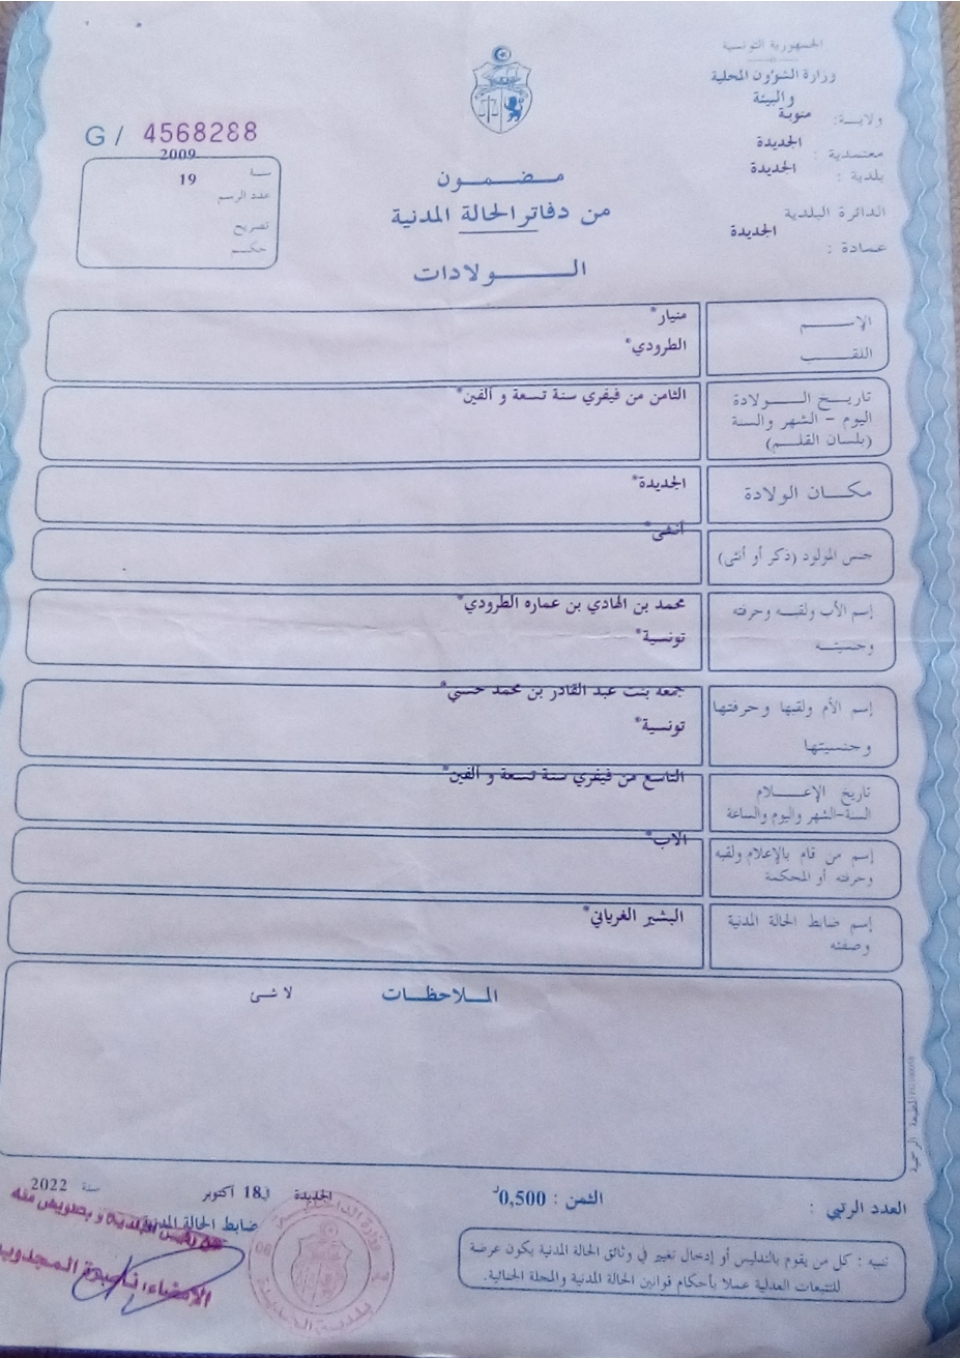 الجمهورية التونسية
وزارة الشؤون المحلية
والبيئة
ولاية: منوبة
معتمدية : الجديدة
بلدية : الجديدة
الدائرة البلدية
الجديدة
عمادة :
G / 4568288
سنة 2009
عدد الرسم 19
تصريح
حكم
مضمون
من دفاتر الحالة المدنية
الولادات
الإسم منيار*
اللقب الطرودي*
تاريخ الولادة الثامن من فيفري سنة تسعة و ألفين*
اليوم - الشهر والسنة
(بلسان القلم)
مكان الولادة الجديدة*
جنس المولود (ذكر أو أنثى) أنثى*
إسم الأب ولقبه وحرفته محمد بن الهادي بن عماره الطرودي*
وجنسيته تونسية*
إسم الأم ولقبها وحرفتها جمعة بنت عبد القادر بن محمد حسني*
وجنسيتها تونسية*
تاريخ الإعلام التاسع من فيفري سنة تسعة و ألفين*
السنة-الشهر واليوم والساعة
إسم من قام بالإعلام ولقبه الاب*
وحرفته أو المحكمة
إسم ضابط الحالة المدنية البشير الغرياني*
وصفته
الملاحظات لا شئ
المطبعة الرسمية
العدد الرتبي :
الثمن : 0,500د
الجديدة في 18 أكتوبر سنة 2022
ضابط الحالة المدنية
رئيس البلدية و بتفويض منه
الإمضاء:
تنبيه : كل من يقوم بالتدليس أو إدخال تغيير في وثائق الحالة المدنية يكون عرضة
للتتبعات العدلية عملا بأحكام قوانين الحالة المدنية والمجلة الجنائية.
بلدية الجديدة